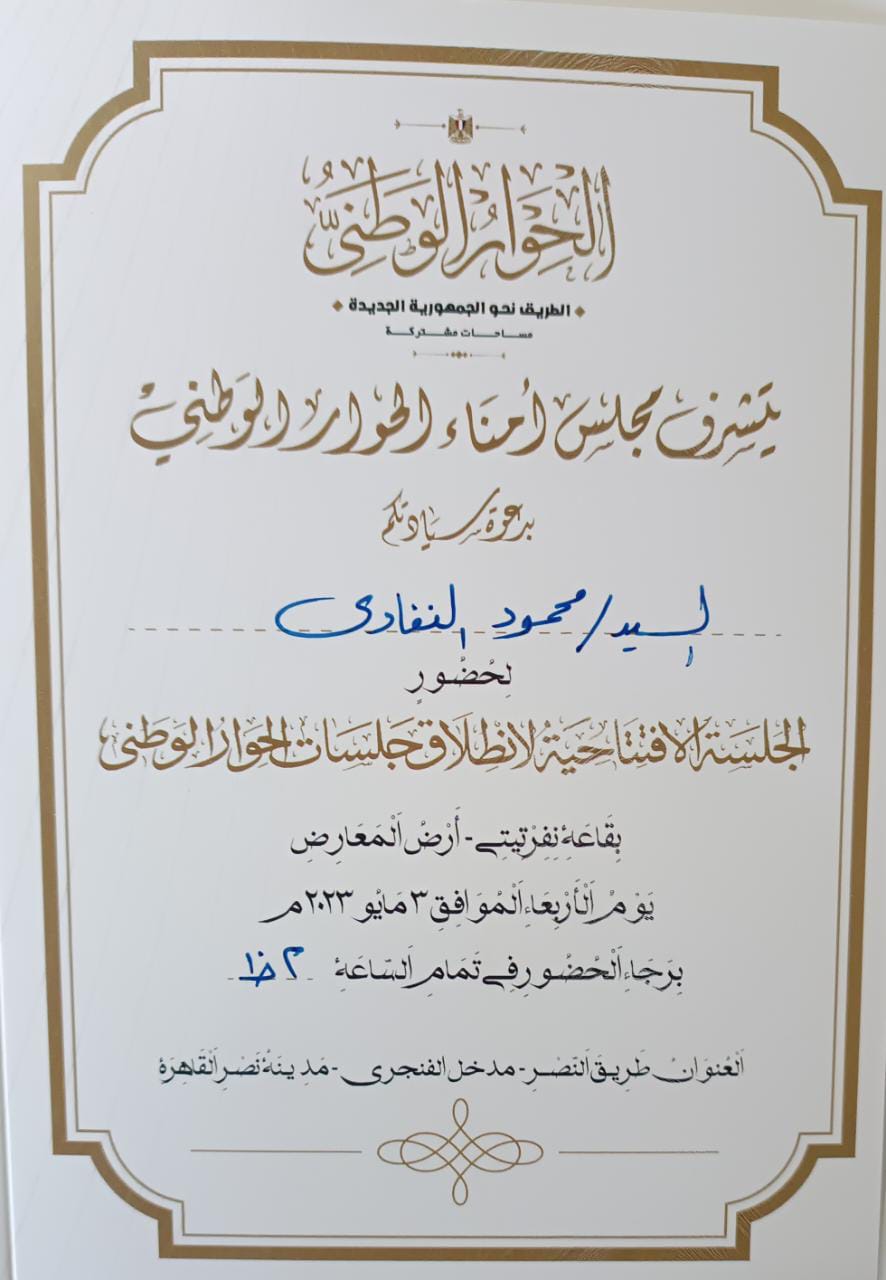 الْحِوَارُ الْوَطَنِيُّ
الطريق نحو الجمهورية الجديدة
مساحات مشتركة
يتشرف مجلس أمناء الحوار الوطني
بدعوة سيادتكم
السيد/ محمود النفادى
لِحُضُورِ
الجَلسَة الافتِتَاحيَة لانطِلَاق جَلسَات الحِوَار الوَطَنى
بِقَاعَةِ نِفِرْتِيتِي - أَرْضُ الْمَعَارِضِ
يَوْمُ الْأَرْبِعَاءِ الْمُوَافِقِ ٣ مَايُو ٢٠٢٣م
بِرَجَاءِ الْحُضُورِ فِي تَمَامِ السَّاعَةِ ٢ ظ
الْعُنْوَانُ طَرِيقَ النَّصْرِ - مدخل الفنجرى - مَدِينَةُ نَصْرِ الْقَاهِرَةِ